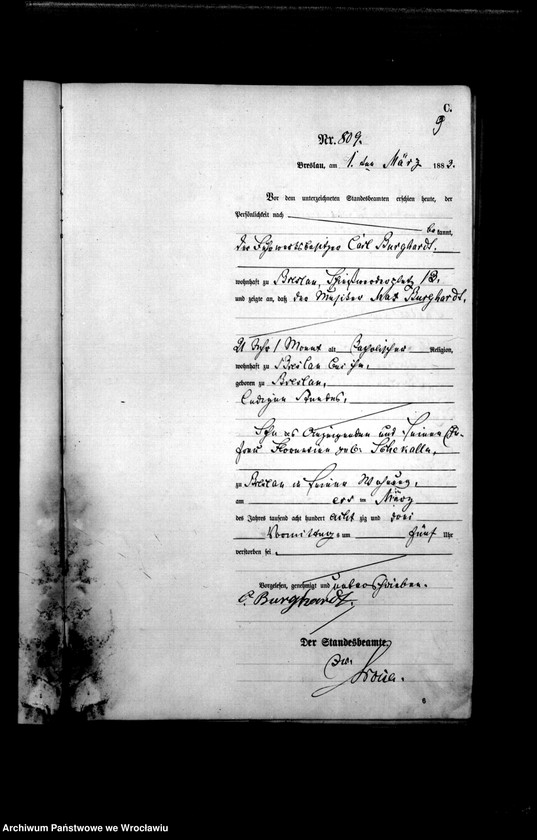 C.
9
Nr. 809.
Breslau, am 1. ten März 1883.
Vor dem unterzeichneten Standesbeamten erschien heute, der
Persönlichkeit nach
be kannt,
der Carl Burghardt.
wohnhaft zu Breslau, 13,
und zeigte an, daß der Max Burghardt,
21 Jahr 1 Monat alt, katholischer Religion,
wohnhaft zu Breslau bei ihm,
geboren zu Breslau,
ledigen Standes,
Sohn des Anzeigenden und seiner Ehe-
frau Florentine geb.
zu Breslau in seiner Wohnung,
am ersten März
des Jahres tausend acht hundert acht zig und drei
Vormittags um fünf Uhr
verstorben sei.
Vorgelesen, genehmigt und unterschrieben.
C. Burghardt.
Der Standesbeamte.
6
Archiwum Państwowe we Wrocławiu